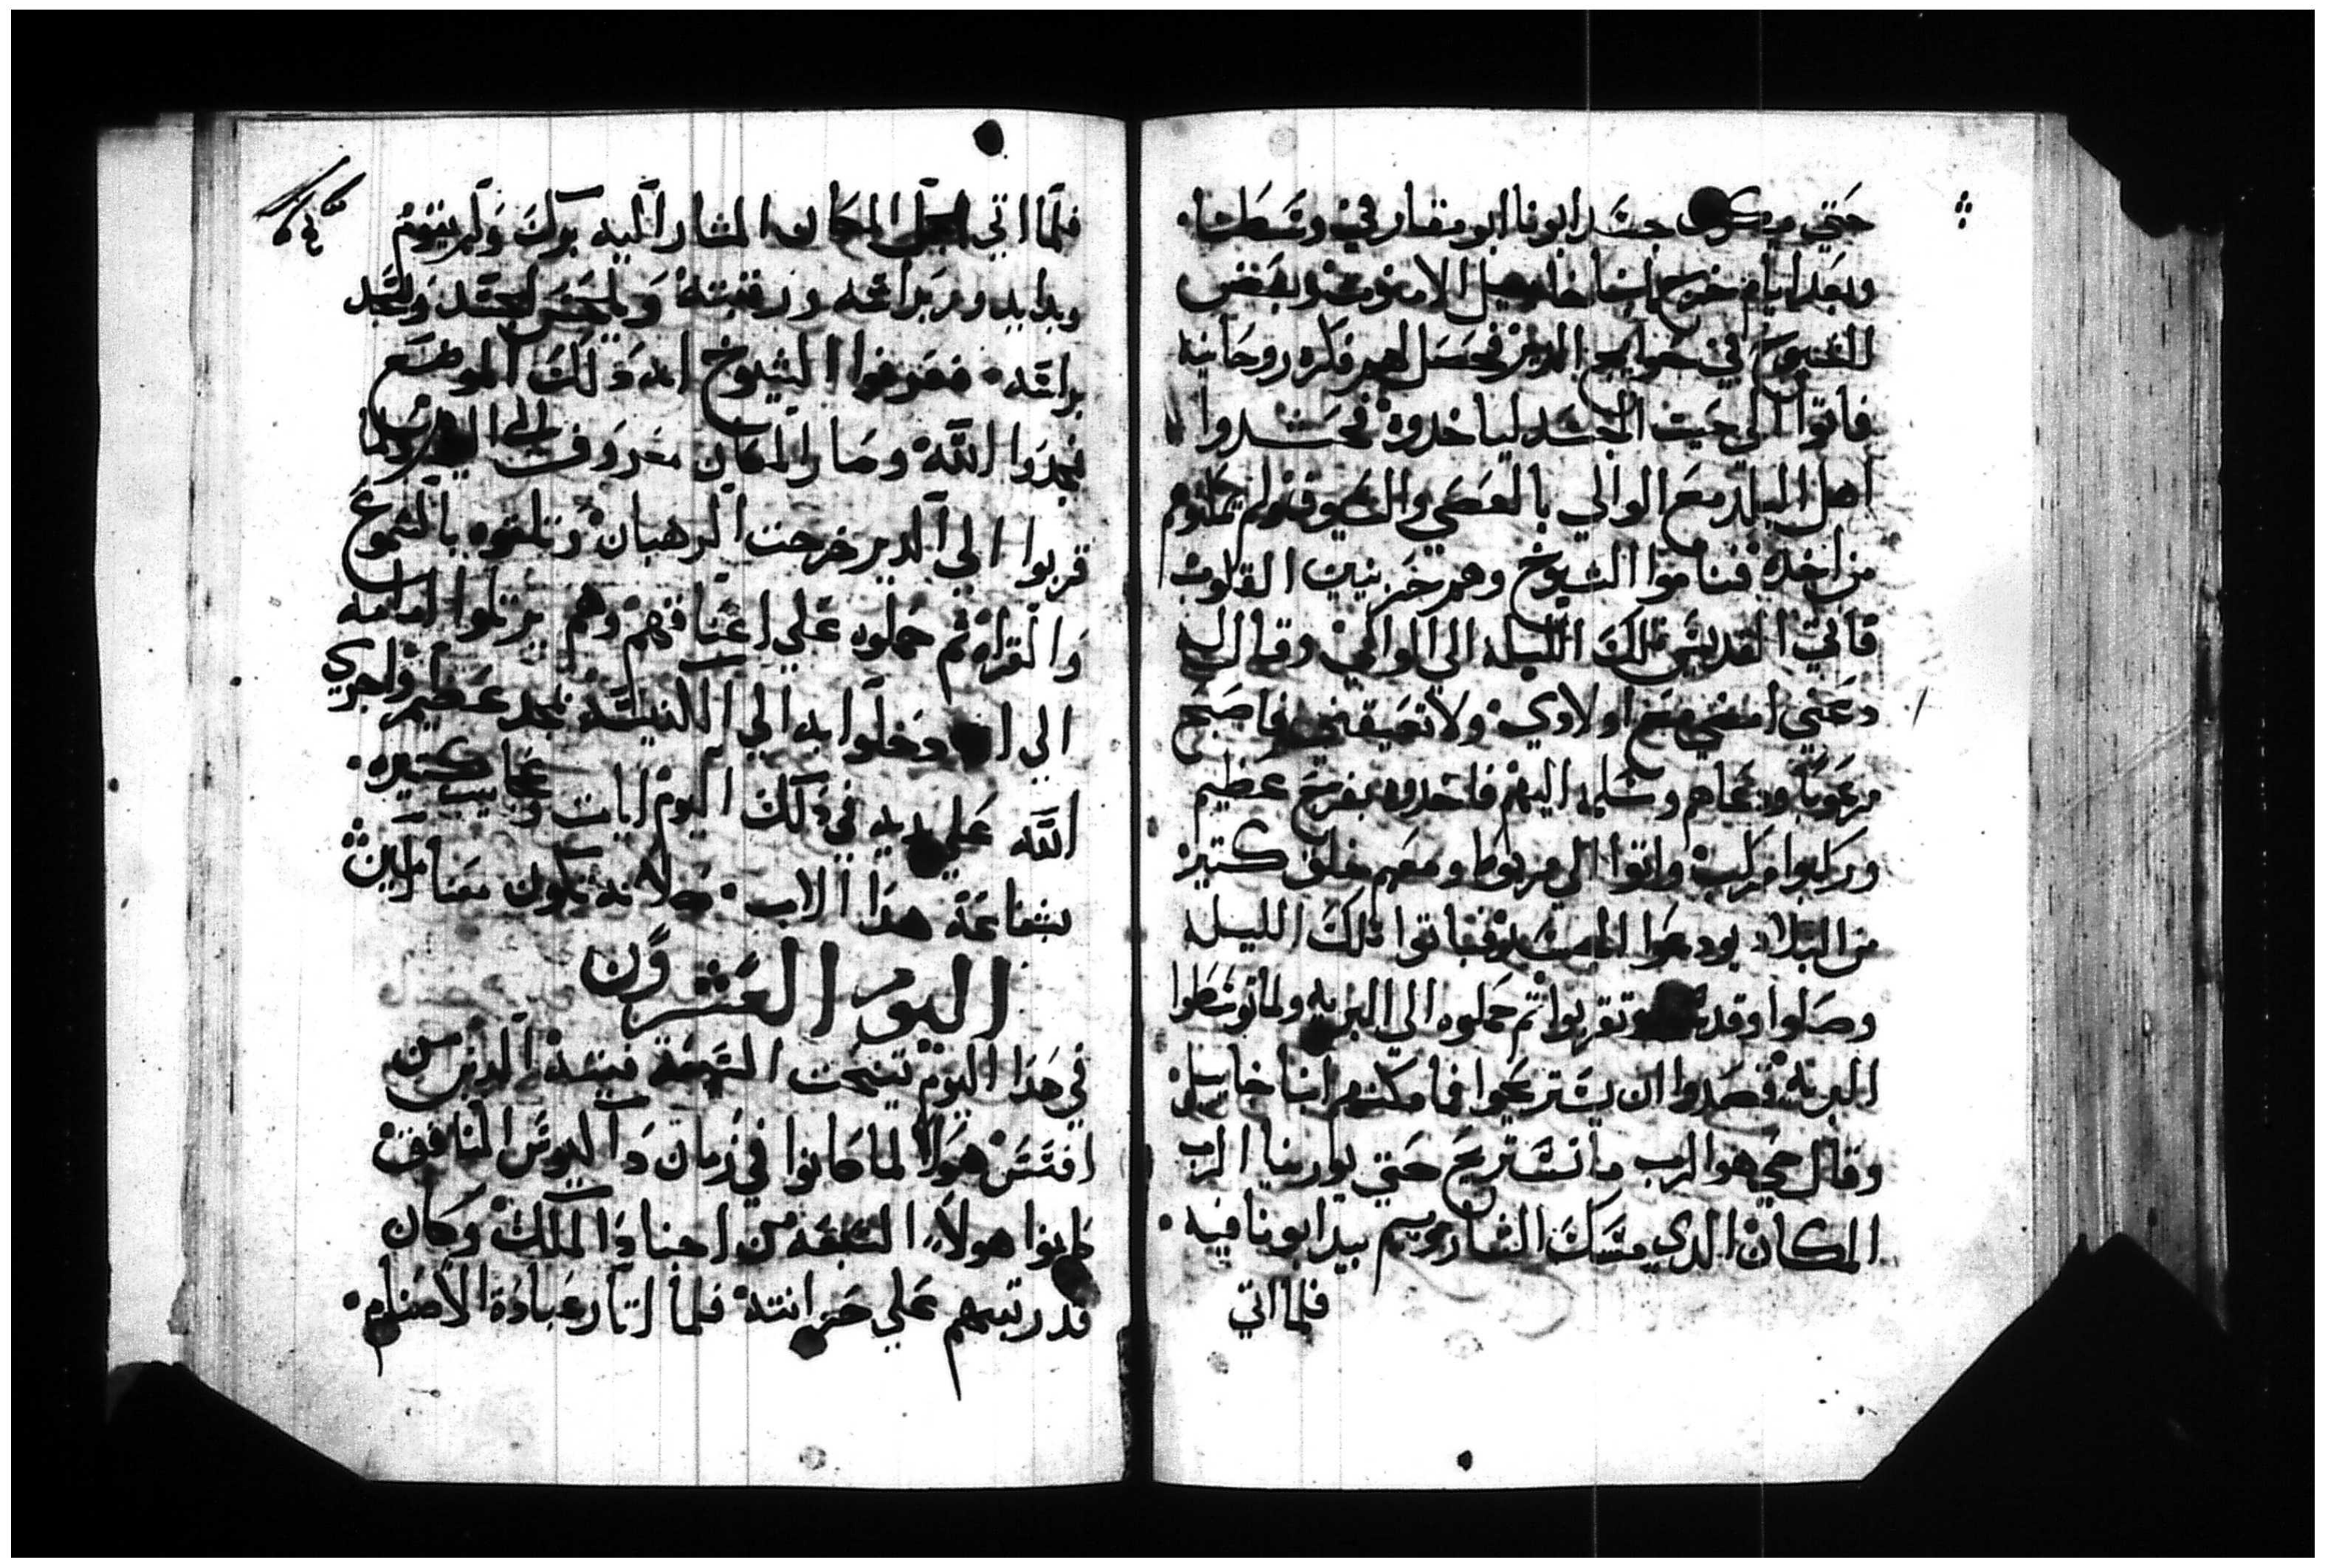 حتي يكون جسد ابونا ابو مقار في وسطنا.
وبعد ايام خرج انبا خاييل الاسقف وبعض
الشيوخ في حوايج الدير فحصل لهم فكره روحانيه
فاتوا الي حيت الجسد لياخدوه فحشدوا
اهل البلد مع الوالي بالعصي والسيوف ولم يمكنوهم
من اخده فناموا الشيوخ وهم حزينين القلوب
فاتي القديس تلك الليله الي الوالي وقال له
دعني امضي مع اولادي ولا تعيقني فاصبح
مرعوبا ودعاهم وسلمه اليهم فاخدوه بفرح عظيم
وركبوا مركب واتوا الي مربوط ومعهم خلق كتير
من البلاد يودعوا الجسد فباتوا تلك الليله
وصلوا وقدسوا وتقربوا تم حملوه الي البريه ولما توسطوا
البريه قصدوا ان يستريحوا فما مكنهم انبا خاييل
وقال حي هو الرب ما نستريح حتي يورينا الرب
المكان الدي مسك الشاروبيم بيد ابونا فيه.
فلما اتي
فلما اتي الجمل المكان المشار اليه برك ولم يقوم
وبدا يدور براسه ورقبته ويلحس الجسد ويسجد
براسه. فعرفوا الشيوخ انه دلك الموضع
فمجدوا الله وصار المكان معروف الي اليوم ولما
قربوا الي الدير خرجت الرهبان وتلقوه بالشموع
والقراه تم حملوه علي اعناقهم وهم يرتلوا امامه
الي ان دخلوا به الي الكنيسه بمجد عظيم واجري
الله علي يديه في دلك اليوم ايات وعجايب كتيره.
شفاعة هدا الاب. صلاته تكون معنا امين
اليوم العشرون
في هدا اليوم تنيحت السبعة فتية الدين من
افسس هولا لما كانوا في زمان داكيوس المنافق
كانوا هولاء السبعه من اجناد الملك وكان
قد رتبهم علي خزانته فلما اتار عبادة الاصنام.